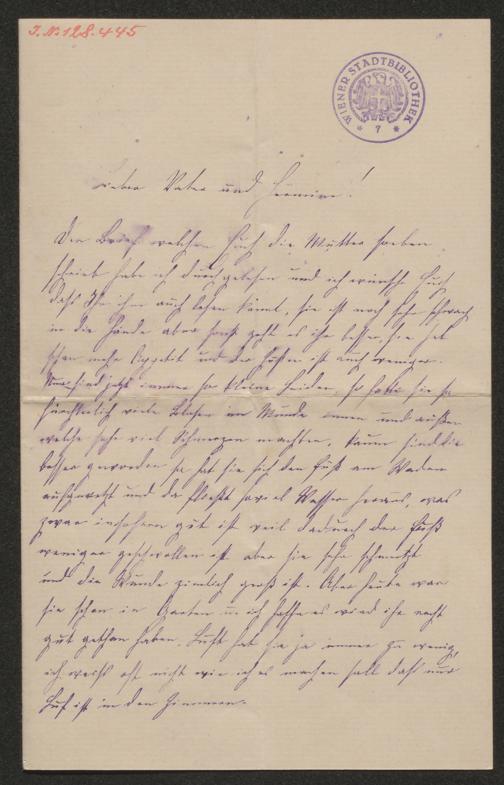 J. No 128.445
WIENER STADTBIBLIOTHEK
* 7 *
Lieber Vater und Hermine!
Den Brief welchen Euch die Mutter soeben
schrieb habe ich durchgelesen und ich wünsche Euch
daß Ihr ihn auch lesen könnt, sie ist noch sehr schwach
in die Hände aber sonst geht es ihr besser, sie hat
schon mehr Appetit und der Husten ist auch weniger.
Nur sind jetzt immer so kleine Leiden, so hatte sie so
fürchterlich viele Blasen im Munde innen und außen
welche sehr viel Schmerzen machten, kaum sind die
besser geworden so hat sie sich den Fuß am Waden
aufgewetzt und da fließt soviel Wasser heraus, was
zwar insofern gut ist weil dadurch der Fuß
weniger geschwollen ist aber sie sehr schmerzt
und die Wunde ziemlich groß ist. Aber heute war
sie schon im Garten u ich hoffe es wird ihr recht
gut gethan haben. Luft hat sie ja immer zu wenig,
ich weiß oft nicht wie ich es machen soll daß nur
Luft ist in den Zimmern.